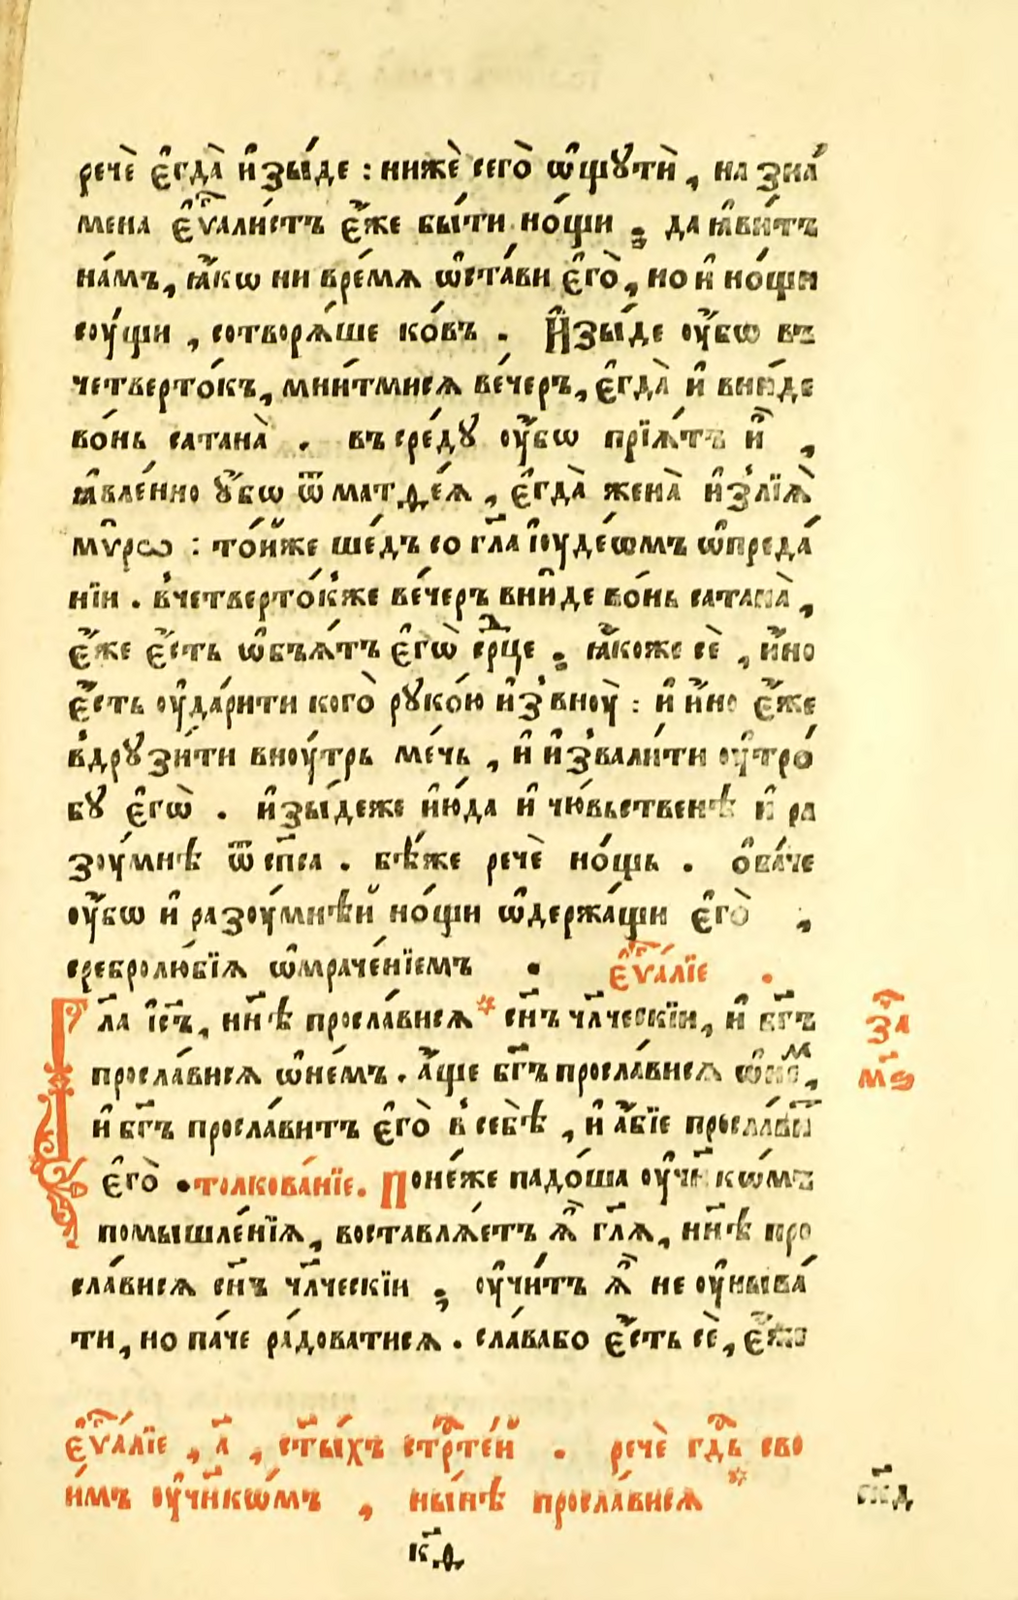 речѐ є҆гда̀ и҆зы́де : нижѐ сего̀ ѡ҆щꙋтѝ , на зна́
мена є҆ѵⷢ҇алистъ є҆́же бы́ти но́щи ; да ꙗ҆ви́тъ
на́мъ, ꙗ҆́кѡ ни вре́мѧ ѡ҆ста́ви є҆го̀, но и҆ но́щи
соу́щи , сотворѧ́ше ко́въ . И҆зы́де оу҆́бѡ въ
четверто́къ, мни́тмисѧ ве́черъ, є҆гда̀ и҆ вни́де
во́нь сатана̀ . въ сре́дꙋ оу҆́бѡ прїѧ́тъ и҆̀ ,
ꙗ҆вле́нно ꙋ҆́бѡ ѿ матѳе́ѧ, є҆гда̀ жена̀ и҆злїѧ̀
мѵ́рѡ : то́йже ше́дъ со гл҃а і҆ꙋде́ѡмъ ѡ҆преда́
нїи . вчетверто́кже ве́черъ вни́де во́нь сатана̀,
є҆́же є҆́сть ѡ҆бъѧ́тъ є҆гѡ̀ срⷣце ; ꙗ҆́коже сѐ , и҆́но
є҆́сть оу҆да́рити кого̀ рꙋко́ю и҆звноу̀ : и҆ и҆́но є҆́же
вдрꙋзи́ти вноу́трь ме́чь , и҆ и҆звали́ти оу҆тро́
бꙋ є҆гѡ̀ . и҆зы́деже и҆ю́да и҆ чю́вьственѣ и҆ ра
зоу́мнѣ ѿ сп҃са . бѣ́же речѐ но́щь . ѻ҆ба́че
оу҆́бѡ и҆ разоу́мнѣй но́щи ѡ҆держа́щи є҆го̀ ,
сребролю́бїѧ ѡ҆мраче́нїемъ . є҆ѵⷢ҇а́лїе .
Гл҃а і҆с҃ъ, нн҃ѣ просла́висѧ * сн҃ъ чл҃ческїи, и҆ бг҃ъ
просла́висѧ ѡ҆не́мъ. а҆́ще бг҃ъ просла́висѧ ѡ҆неⷨ,
и҆ бг҃ъ просла́витъ є҆го̀ в себѣ̀ , и҆ а҆́бїе просла́виⷮ
є҆го̀ . толкова́нїе. Поне́же падо́ша оу҆чн҃кѡ́мъ
помышле́нїѧ, воставлѧ́етъ ѧ҆̀ гл҃ѧ, нн҃ѣ про
сла́висѧ сн҃ъ чл҃ческїи ; оу҆чи́тъ ѧ҆̀ не оу҆ныва́
ти, но па́че ра́доватисѧ . сла́вабо є҆́сть сѐ, є҆́же
заⷱ҇
м҃ѕ
є҆ѵⷢ҇а́лїе , а҃ , ст҃ы́хъ стрⷭ҇те́й . речѐ гдⷭ҇ь сво
и́мъ оу҆чн҃кѡ́мъ , ны́нѣ просла́висѧ *
ск҃д
к҃ѳ.